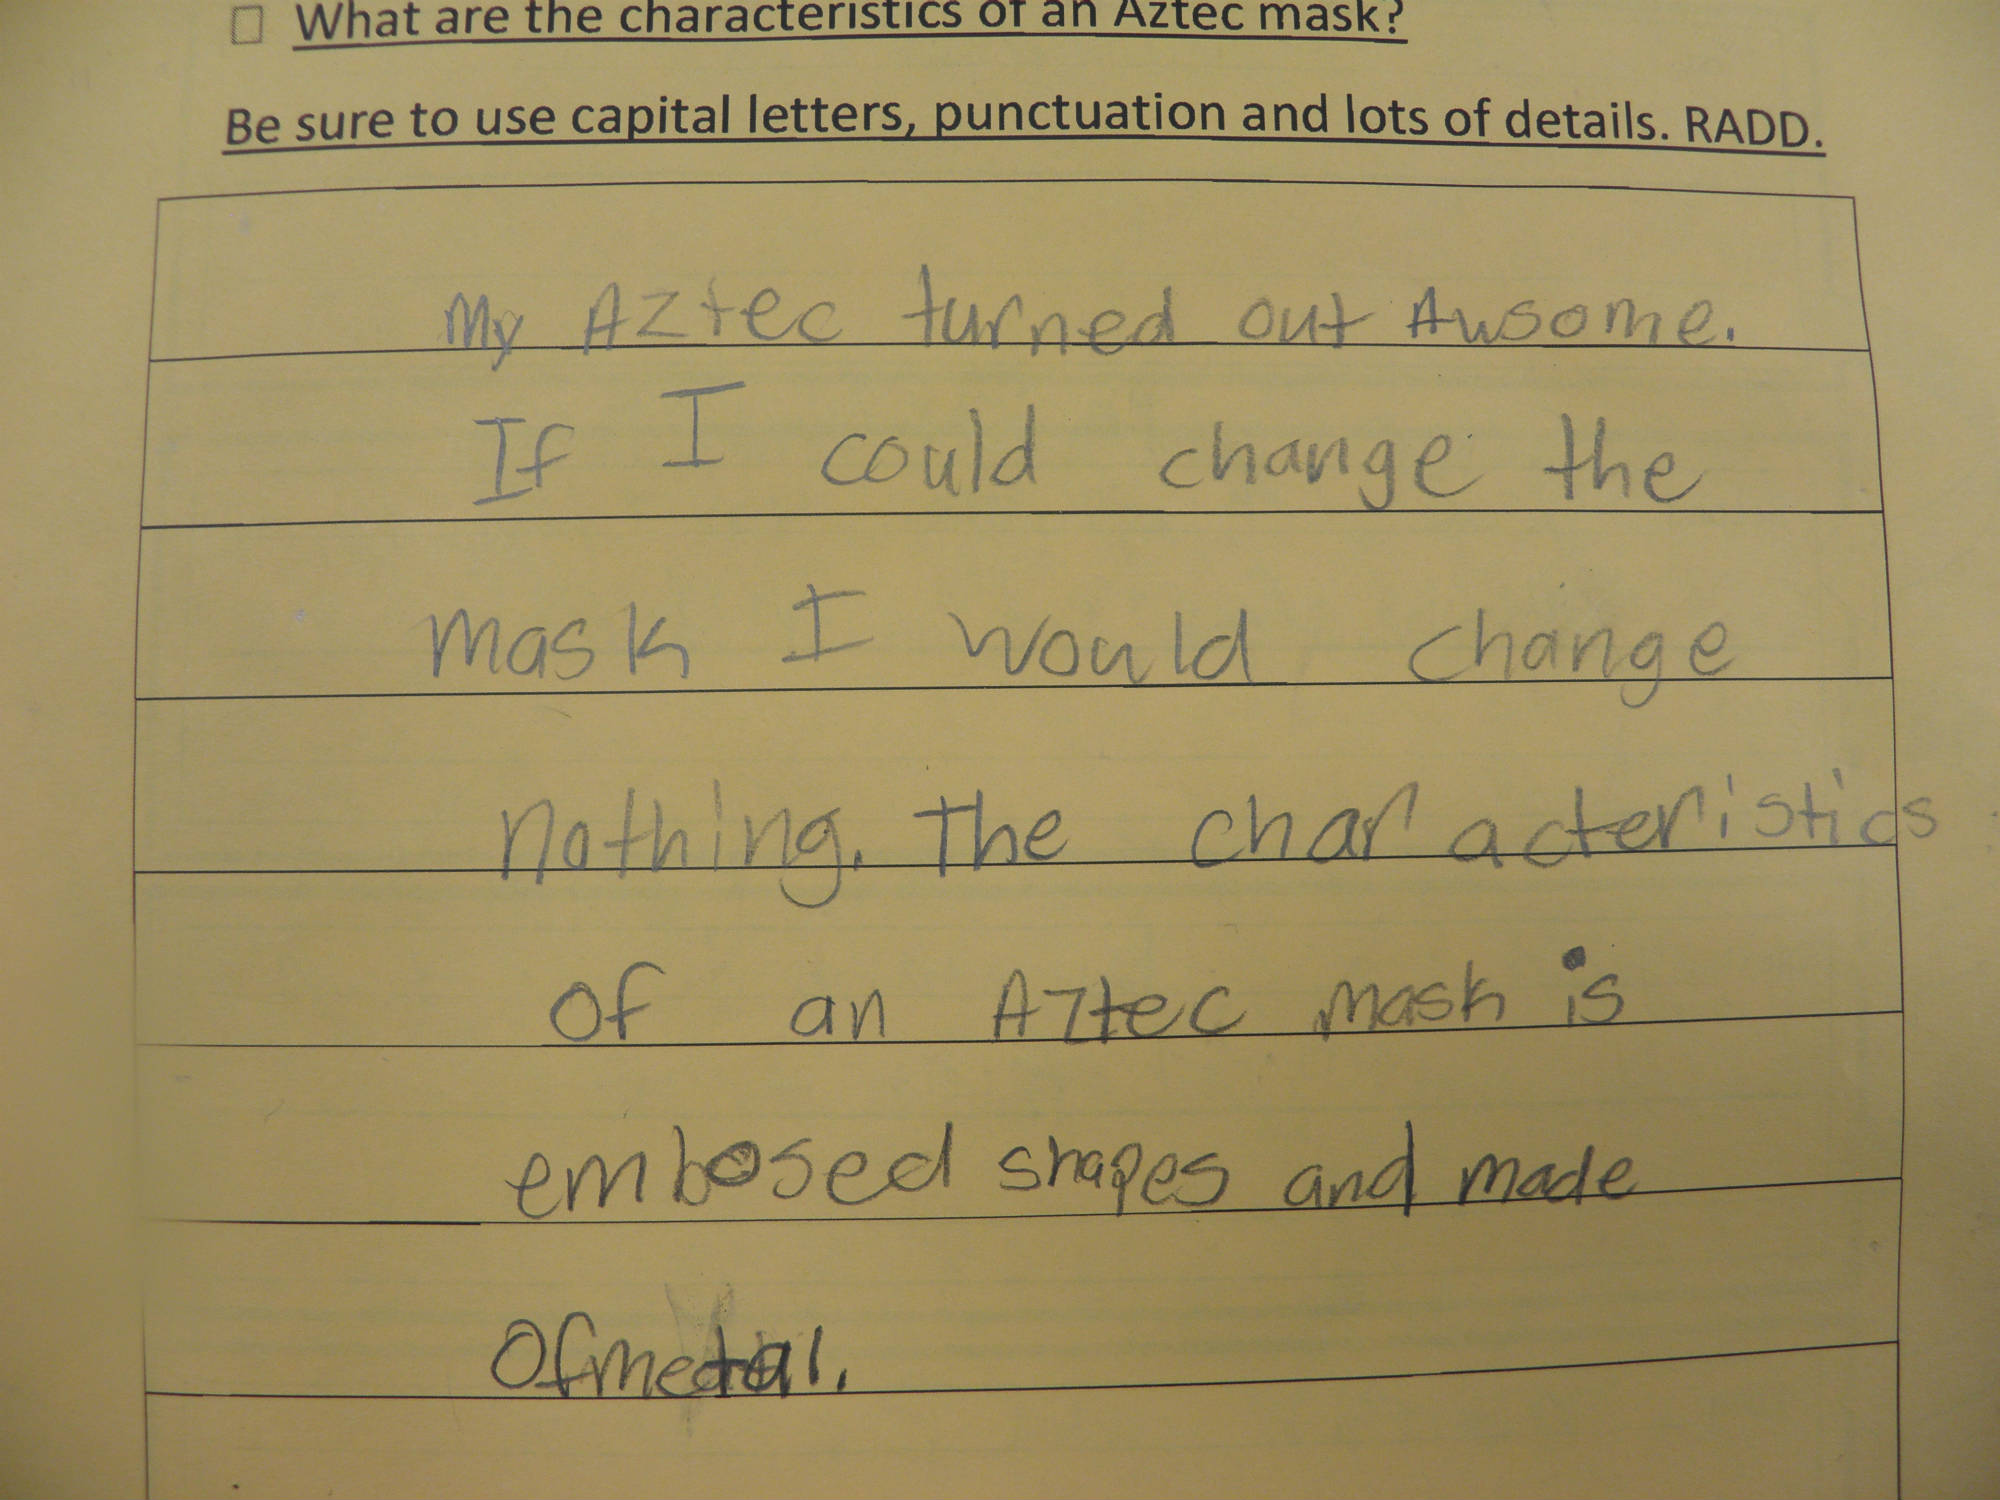 □ What are the characteristics of an Aztec mask?
Be sure to use capital letters, punctuation and lots of details. RADD.
My Aztec turned out Awsome.
If I could change the
mask I would change
nothing. The characteristics
of an Aztec mask is
embosed shapes and made
Of metal.